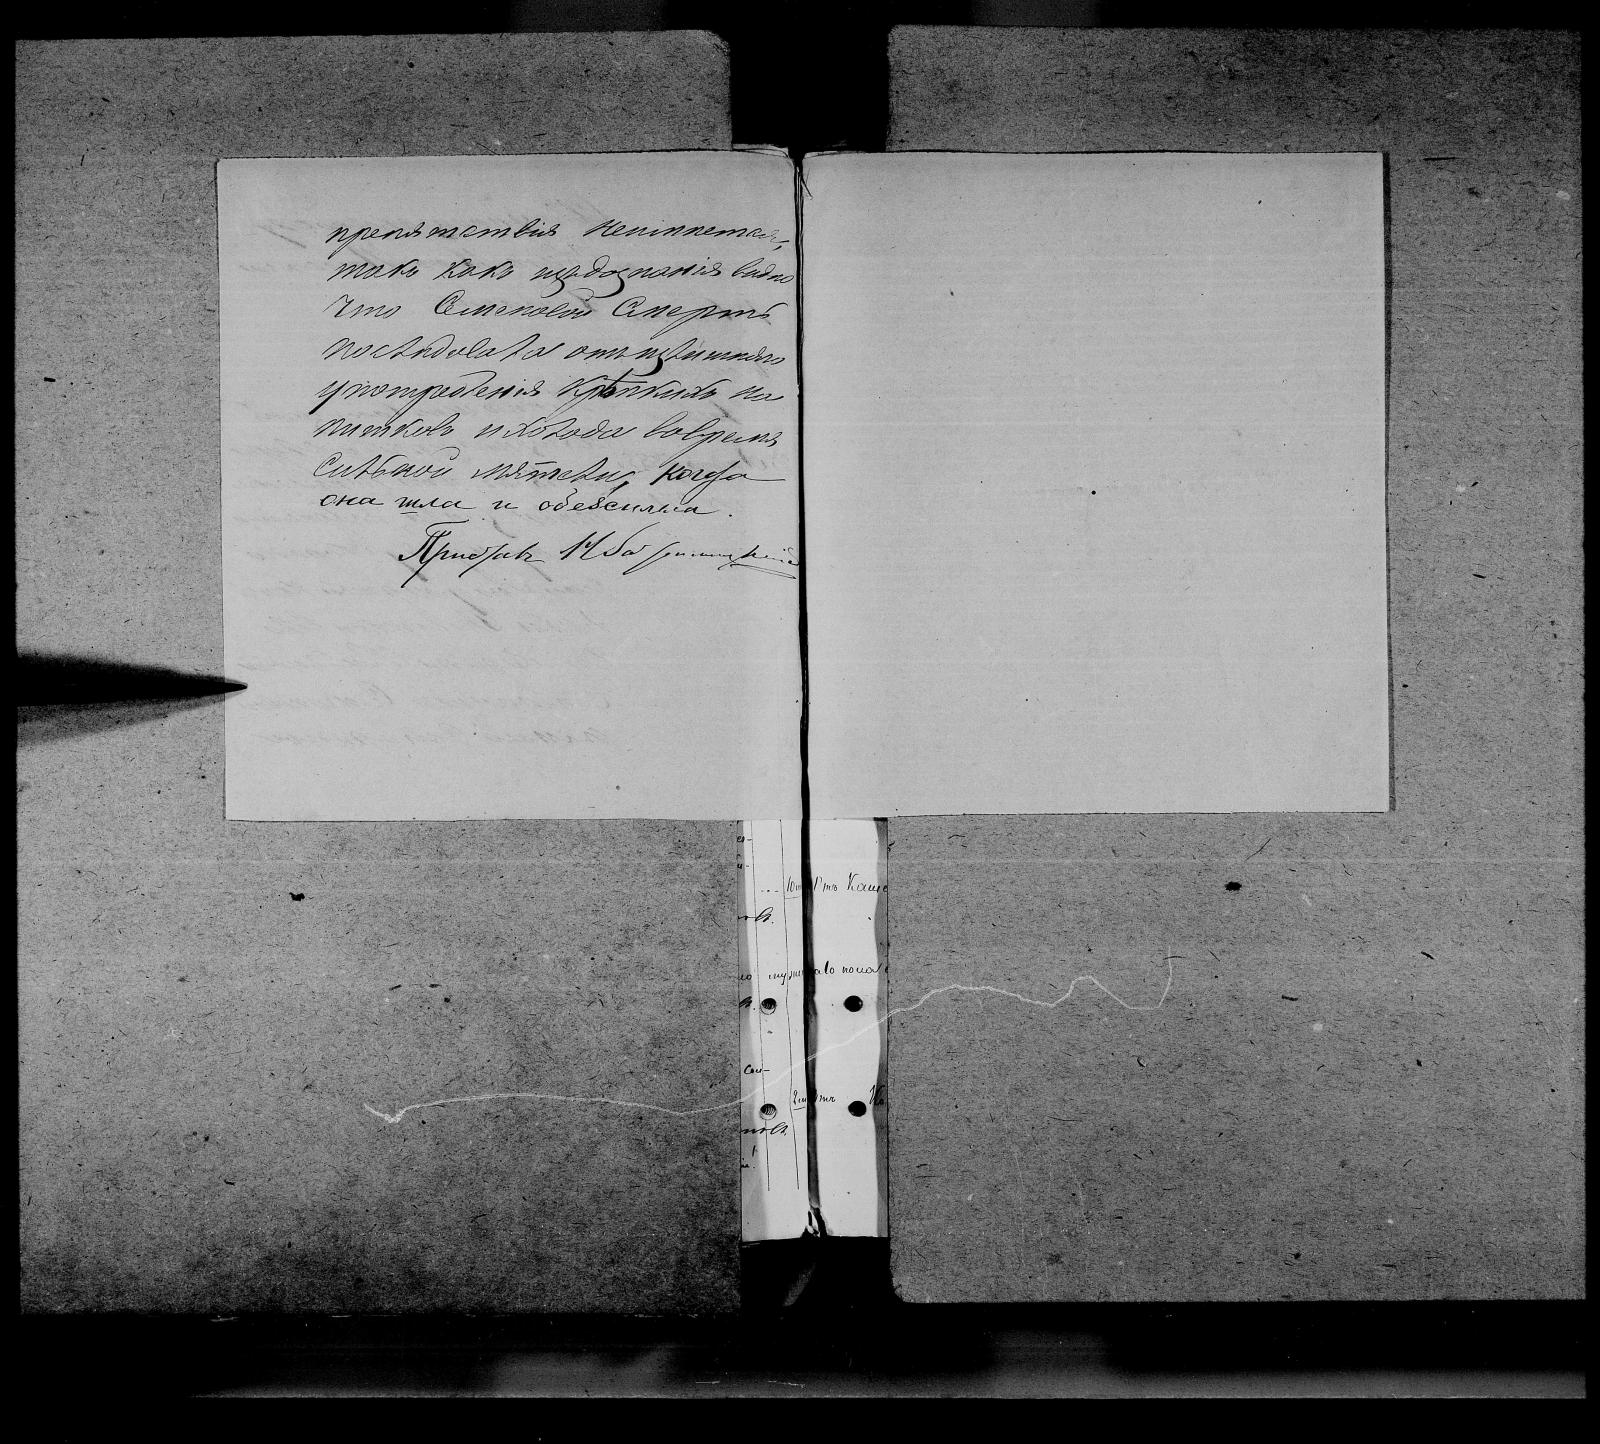 препятствия неимеется,
такъ какъ издознанія видно
что Семеновой Смерть
последовала отъ излишняго
употребленія крѣпкихъ на
питковъ и холода вовремя
сильной мятели, когда
она шла и обезсилила.
Приставъ